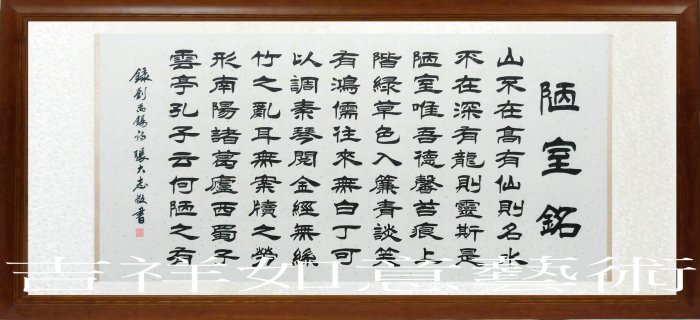 陋室銘
山不在高有仙則名水
不在深有龍則靈斯是
陋室唯吾德馨苔痕上
階綠草色入簾青談笑
有鴻儒往來無白丁可
以調素琴閱金經無絲
竹之亂耳無案牘之勞
形南陽諸葛廬西蜀子
雲亭孔子云何陋之有
錄劉禹錫詩 張大志敬書
吉祥如意藝術